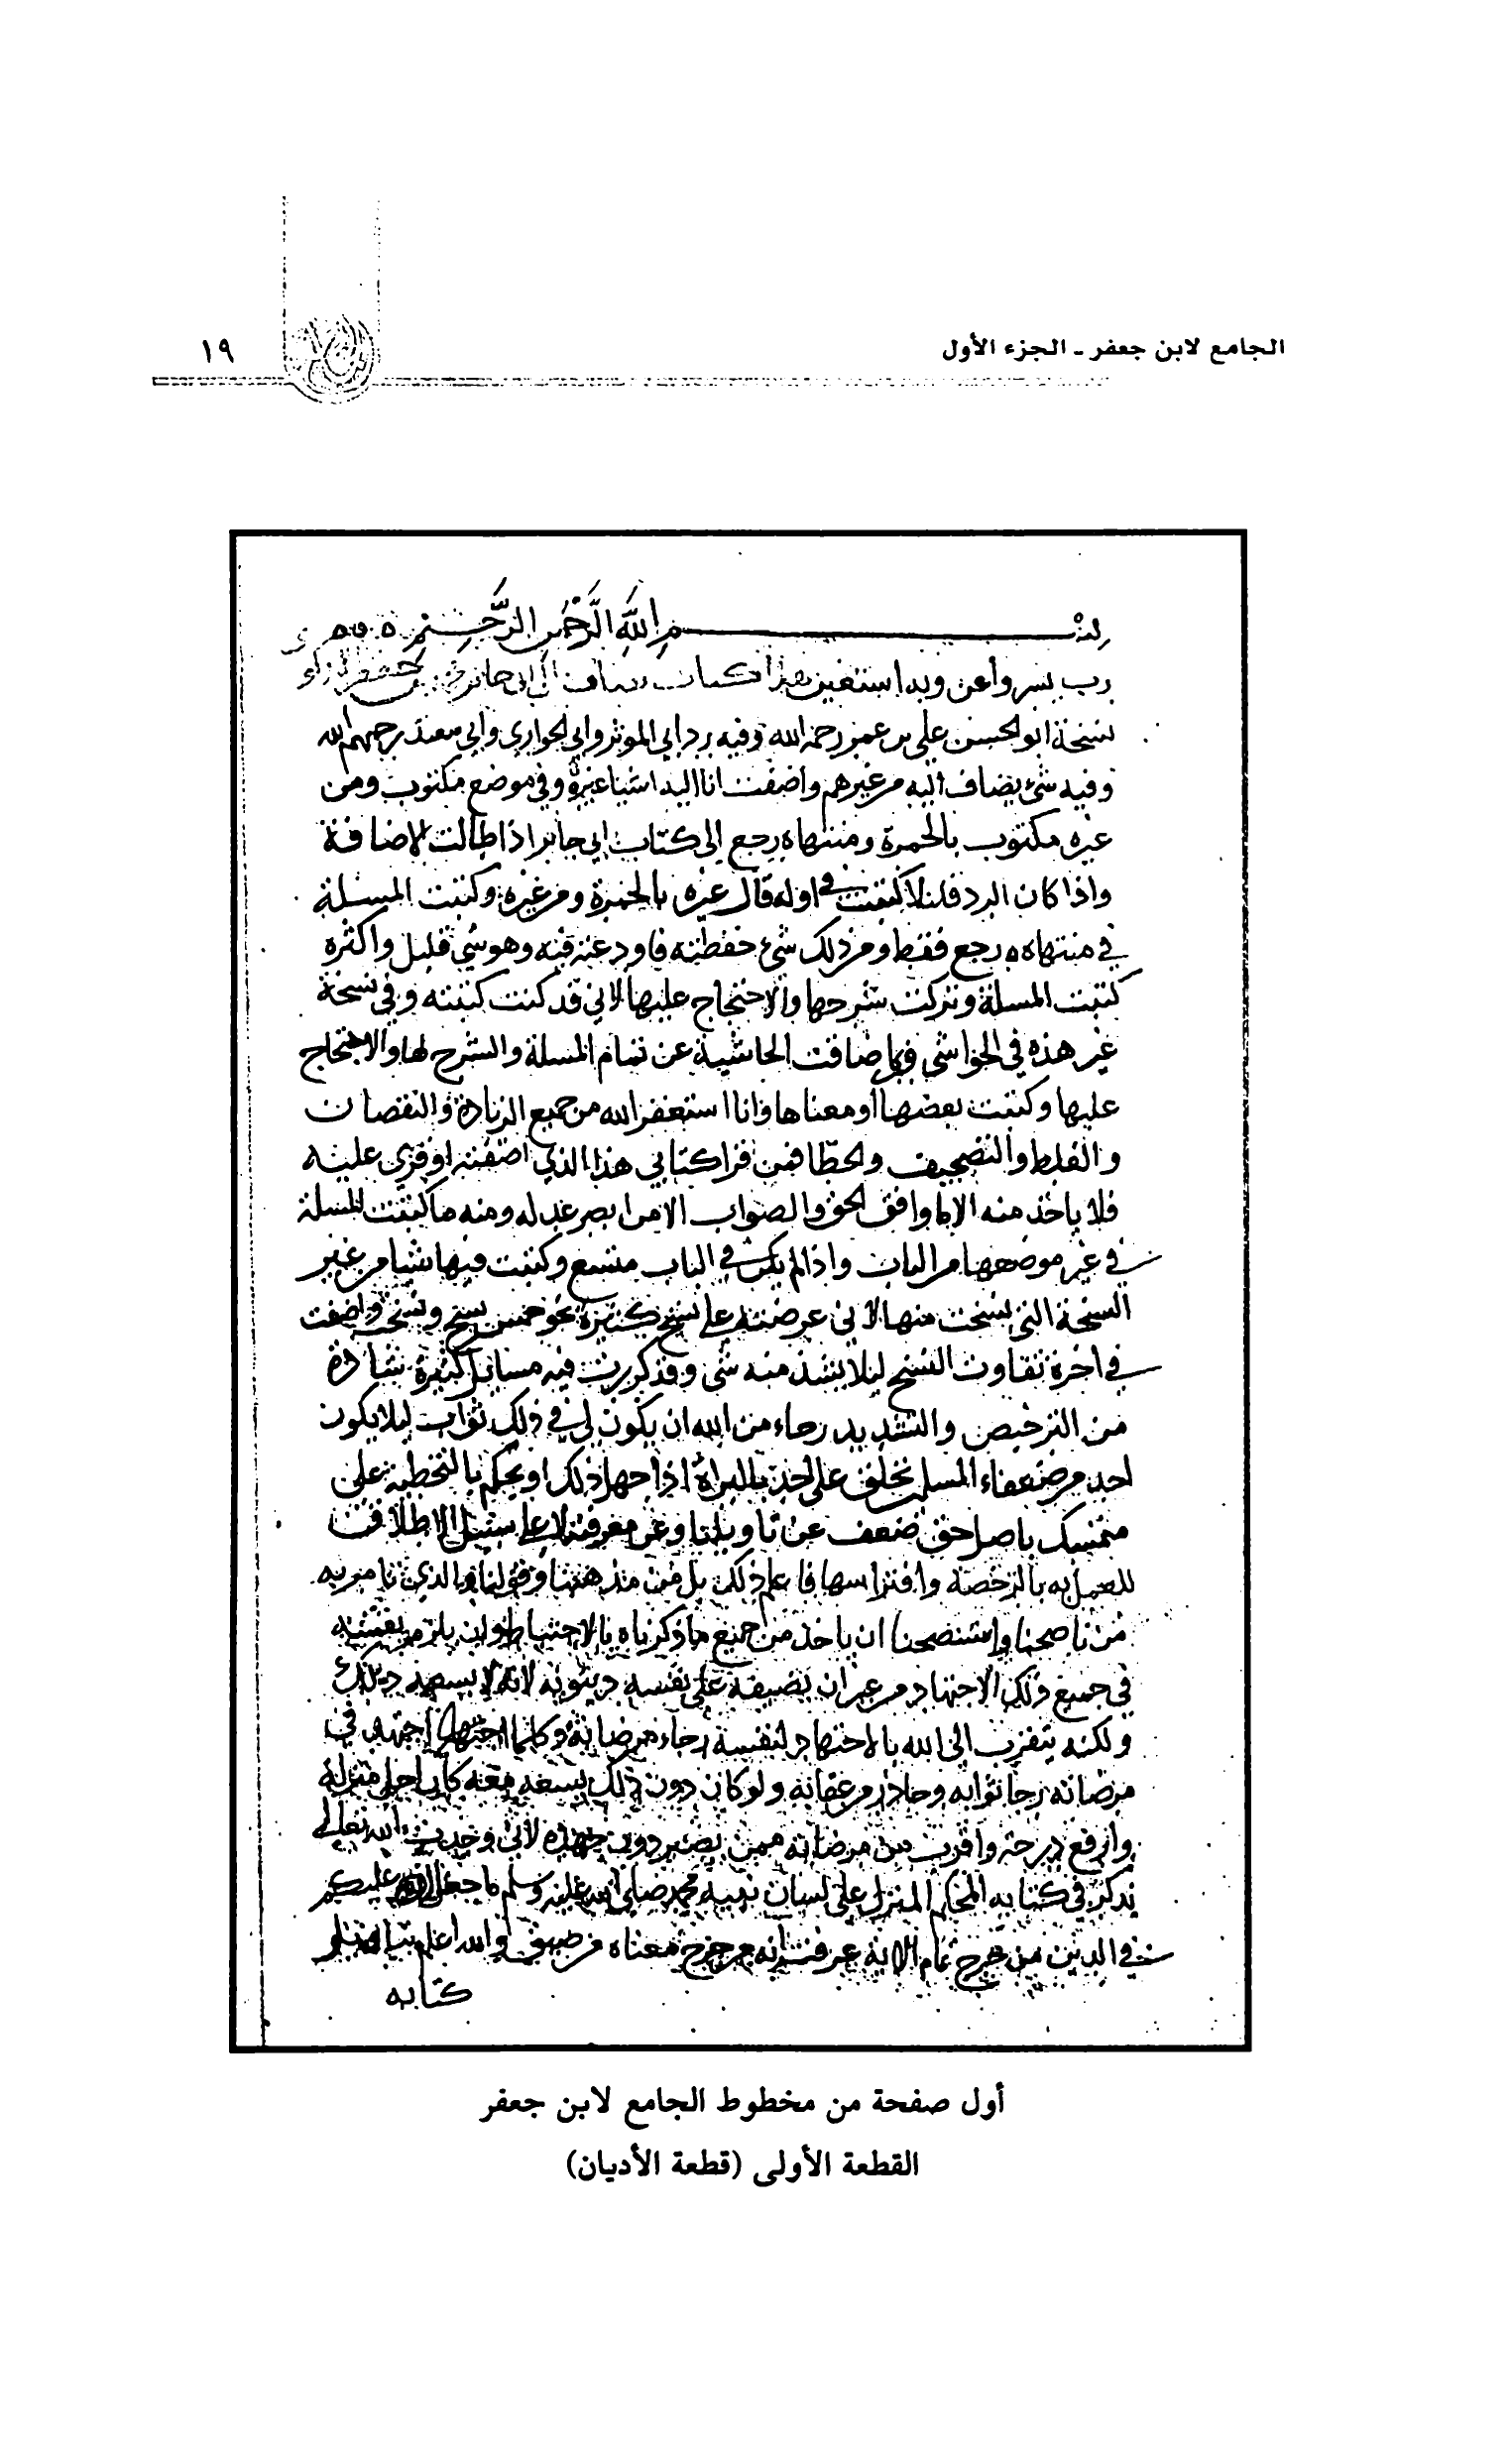 الجامع لابن جعفر ـ الجزء الأول
١٩
بسم الله الرحمن الرحيم
رب يسر وأعن وبه استعين هذا كتاب
نسخة ابو الحسن علي بن عمر رحمه الله وفيه رد ابي الموثر وابي الحواري وابي رحمهم الله
وفيه شيء يضاف اليه من غيرهم واضفت انا اليه اشيا غيره وفي موضع مكتوب ومن
غيره مكتوب بالحمرة ومنتهاه رجع الى كتاب ابي جابر اذا طالت الاضافة
واذا كان الرد قليلا كتبت في اوله قال غيره بالحمرة ومن غيره وكتبت المسلة
في منتهاه رجع فقط ومن ذلك شيء حفظته فيه وهو شي قليل واكثره
كتبت المسلة وتركت شرحها والاحتجاج عليها لاني قد كنت كتبته وفي نسخة
غير هذه في الحواشي الحاشية عن تمام المسلة والشرح لها والاحتجاج
عليها وكتبت بعضها او معناها وانا استغفر الله من جميع الزيادة والنقصان
والغلط والتصحيف والخطا فمن قرا كتابي هذا الذي اضفته او قري عليه
فلا ياخذ منه الا ما وافق الحق والصواب الا من ابصر عدله ومنه ما كتبت المسلة
في غير موضعها من الباب واذا لم يكن في الباب متسع وكتبت فيها شيا من غير
النسخة التي نسخت منها لاني عرضته على نسخ كثيرة نحو خمس نسخ واضفت
في اخره تفاوت النسخ ليلا يشذ منه شي وقد كررت فيه مسايل كثيرة شاذة
من الترخيص والتشديد رجاء من الله ان يكون لي في ذلك ثواب ليلا يكون
احد من ضعفاء المسلمين على احد بالبراة اذا جهل ذلك او يحكم بالتخطية على
متمسك باصل حق ضعف عن تاويلنا وعن معرفته لا على سبيل الاطلاق
للعمل به بالرخصة ذلك بل من مذهبنا وقولنا والذي نامر به
من ناصحنا واستنصحنا ان ياخذ من جميع ما ذكرناه بالاحتياط وان يلزم نفسه
في جميع ذلك الاجتهاد من غير ان يضيقه على نفسه لانه لا يسعه
ولكنه يتقرب الى الله بالاجتهاد لنفسه رجاء مرضاته وكلما اجتهد في
مرضاته رجا ثوابه وحاذر من عقابه ولو كان دون ذلك يسعه كان اجل منزلة
وارفع درجة واقرب من مرضاته ممن لاني وجدت الله تعالى
يذكر في كتابه المحكم المنزل على لسان نبيه محمد صلى الله عليه وسلم ما جعل عليكم
في الدين من حرج تمام الاية عرفت انه من حرج معناه من ضيق والله اعلم
كتابه
أول صفحة من مخطوط الجامع لابن جعفر
القطعة الأولى (قطعة الأديان)